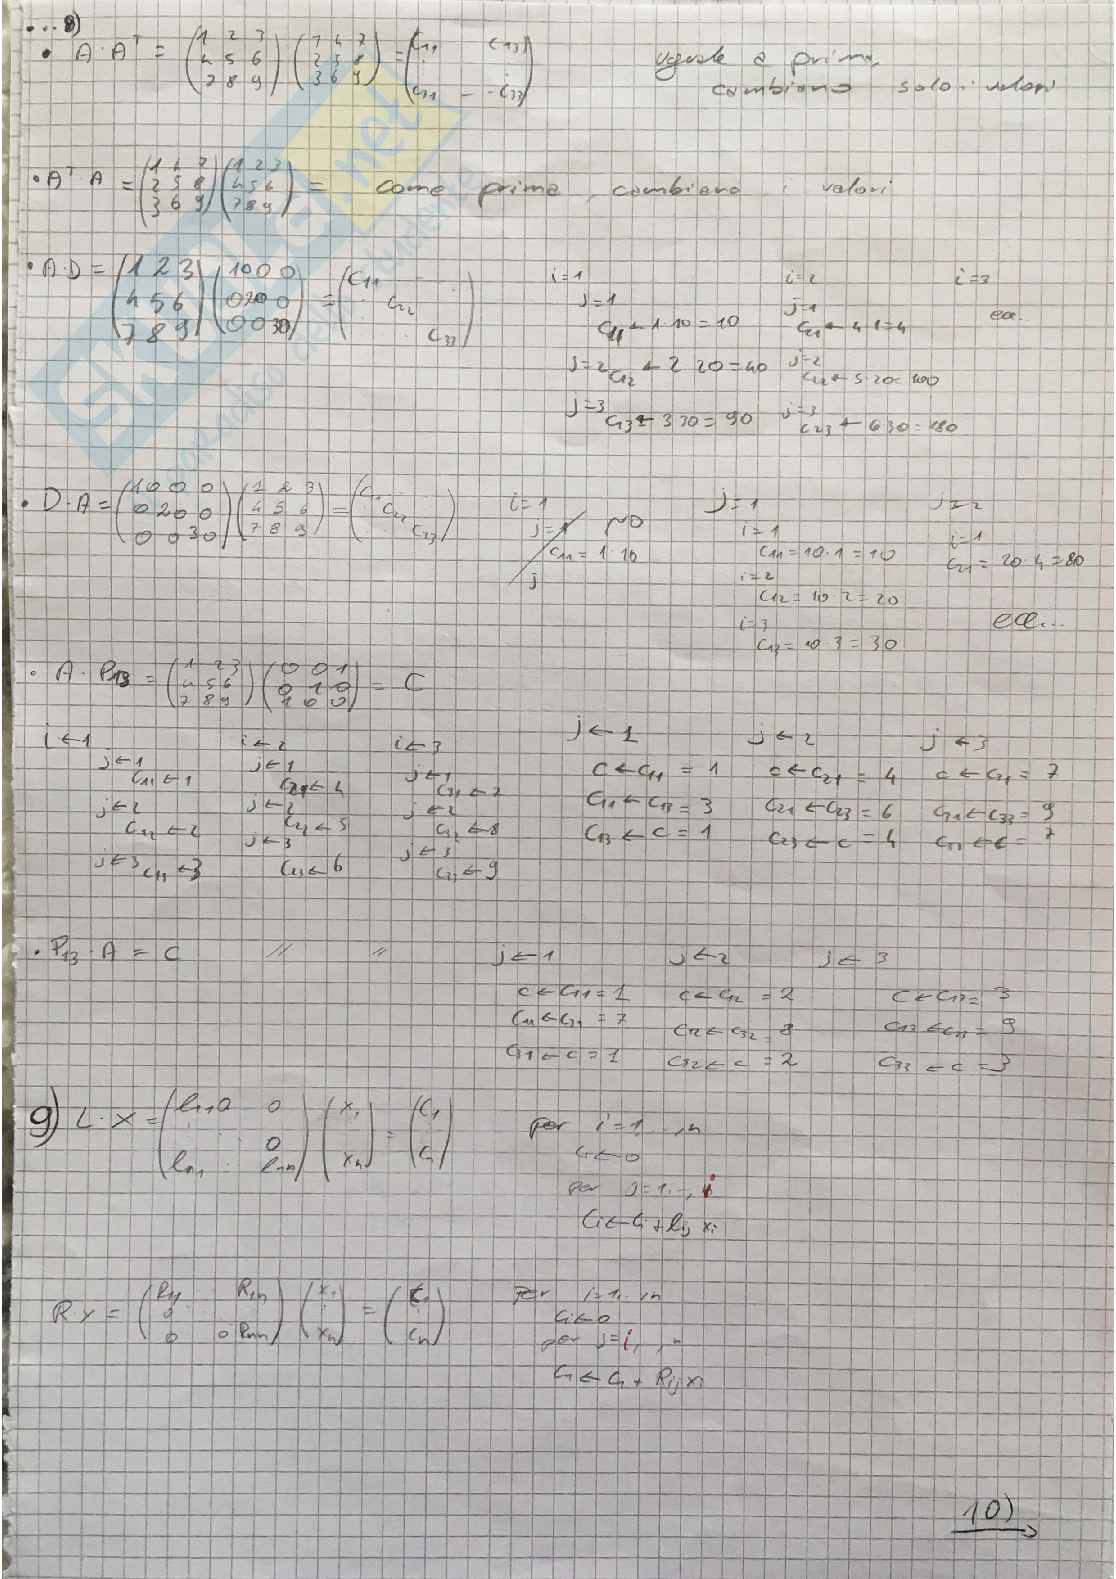 ...8)
• A·Aᵀ = (1 2 3 / 4 5 6 / 7 8 9) (1 4 7 / 2 5 8 / 3 6 9) = (c11 c13 / c31 -- c33) uguale a prima,
cambiano solo i valori
• Aᵀ·A = (1 4 7 / 2 5 8 / 3 6 9) (1 2 3 / 4 5 6 / 7 8 9) = come prima, cambiano i valori
• A·D = (1 2 3 / 4 5 6 / 7 8 9) (10 0 0 / 0 20 0 / 0 0 30) = (c11 / c22 / c33)
i=1
j=1
c11 ← 1·10 = 10
j=2
c12 ← 2 20 = 40
j=3
c13 ← 3 30 = 90
i=2
j=1
c21 ← 4 1 = 4
j=2
c22 ← 5·20 = 100
j=3
c23 ← 6 30 = 180
i=3
ecc.
• D·A = (10 0 0 / 0 20 0 / 0 0 30) (1 2 3 / 4 5 6 / 7 8 9) = (c11 / c22 / c33)
i=1
j=1 NO
c11 = 1·10
j
j=1
i=1
c11 = 10·1 = 10
i=2
c12 = 10·2 = 20
i=3
c13 = 10·3 = 30
j=2
i=1
c21 = 20·4 = 80
ecc...
• A·P13 = (1 2 3 / 4 5 6 / 7 8 9) (0 0 1 / 0 1 0 / 1 0 0) = C
i←1
j←1
c11 ← 1
j←2
c12 ← 2
j←3
c13 ← 3
i←2
j←1
c21 ← 4
j←2
c22 ← 5
j←3
c23 ← 6
i←3
j←1
c31 ← 7
j←2
c32 ← 8
j←3
c33 ← 9
j←1
c←c11 = 1
c11←c13 = 3
c13←c = 1
j←2
c←c21 = 4
c21←c23 = 6
c23←c = 4
j←3
c←c31 = 7
c31←c33 = 9
c33←c = 7
• P13·A = C // //
j←1
c←c11 = 1
c11←c31 = 7
c31←c = 1
j←2
c←c12 = 2
c12←c32 = 8
c32←c = 2
j←3
c←c13 = 3
c13←c33 = 9
c33←c = 3
9) L·x = (l11 0 0 / 0 / ln1 lnn) (x1 / xn) = (c1 / cn)
per i=1,..,n
ci←0
per j=1,..,i
ci←ci+lij xi
R·x = (R11 R1n / 0 / 0 0 Rnn) (x1 / xn) = (c1 / cn)
per i=1,..,n
ci←0
per j=i,..,n
ci←ci+Rij xi
10)
SKUOLA.net